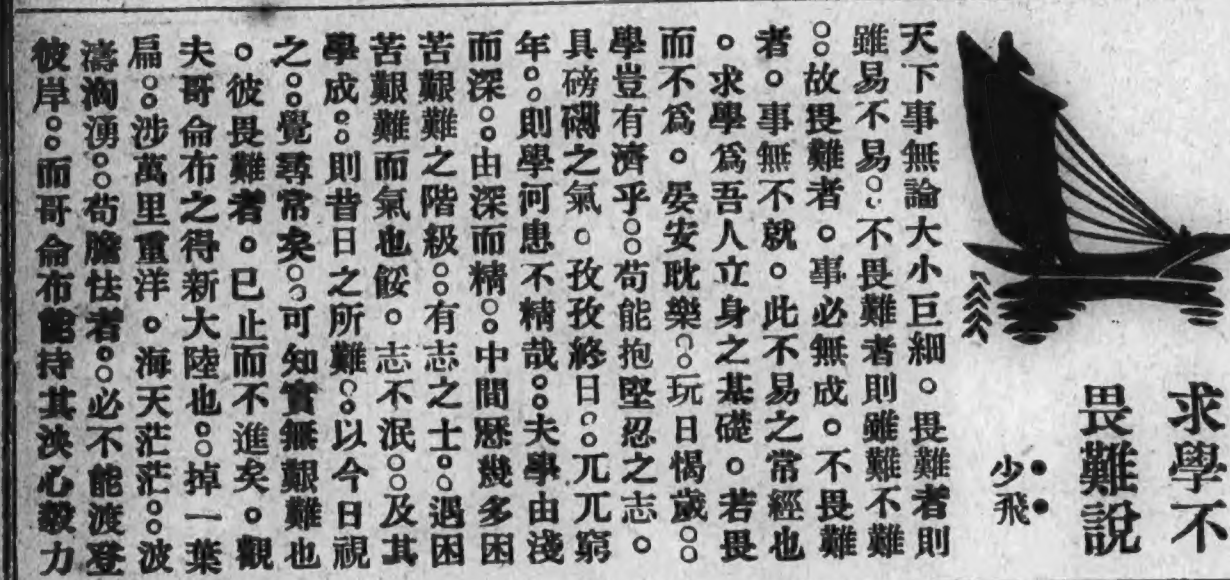 求學不
畏難說
少飛
天下事無論大小巨細。畏難者則
雖易不易。。不畏難者則雖難不難
。。故畏難者。事必無成。不畏難
者。事無不就。此不易之常經也
。求學爲吾人立身之基礎。若畏
而不爲。晏安耽樂。。玩日愒歲。。
學豈有濟乎。。苟能抱堅忍之志。
具磅礴之氣。孜孜終日。。兀兀窮
年。。則學河患不精哉。。夫學由淺
而深。。由深而精。。中間歷幾多困
苦艱難之階級。。有志之士。。遇困
苦艱難而氣也餒。志不泯。。及其
學成。。則昔日之所難。。以今日視
之。。覺尋常矣。。可知實無艱難也
。彼畏難者。已止而不進矣。觀
夫哥侖布之得新大陸也。。掉一葉
扁。。涉萬里重洋。海天茫茫。。波
濤洶湧。。苟膽怯者。。必不能渡登
彼岸。。而哥侖布能持其決心毅力